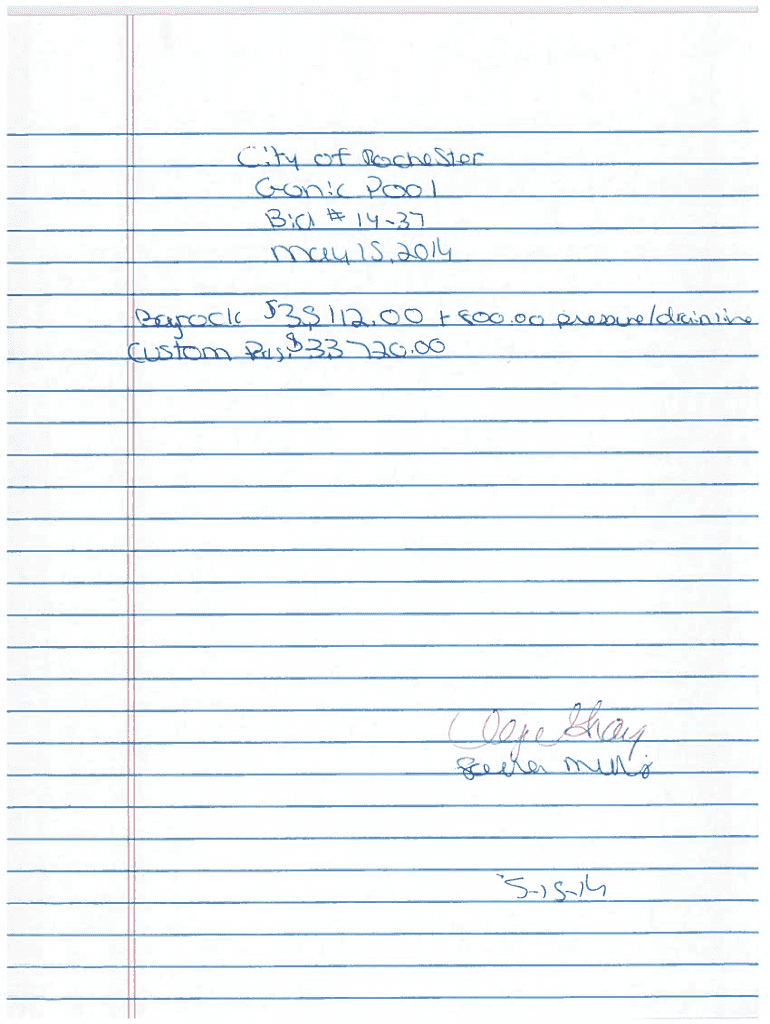 City of Rochester
Gonic Pool
Bid # 14-37
May 15, 2014
Bayrock $38112.00 + 800.00 pressure/drain line
Custom $33720.00
5-15-14